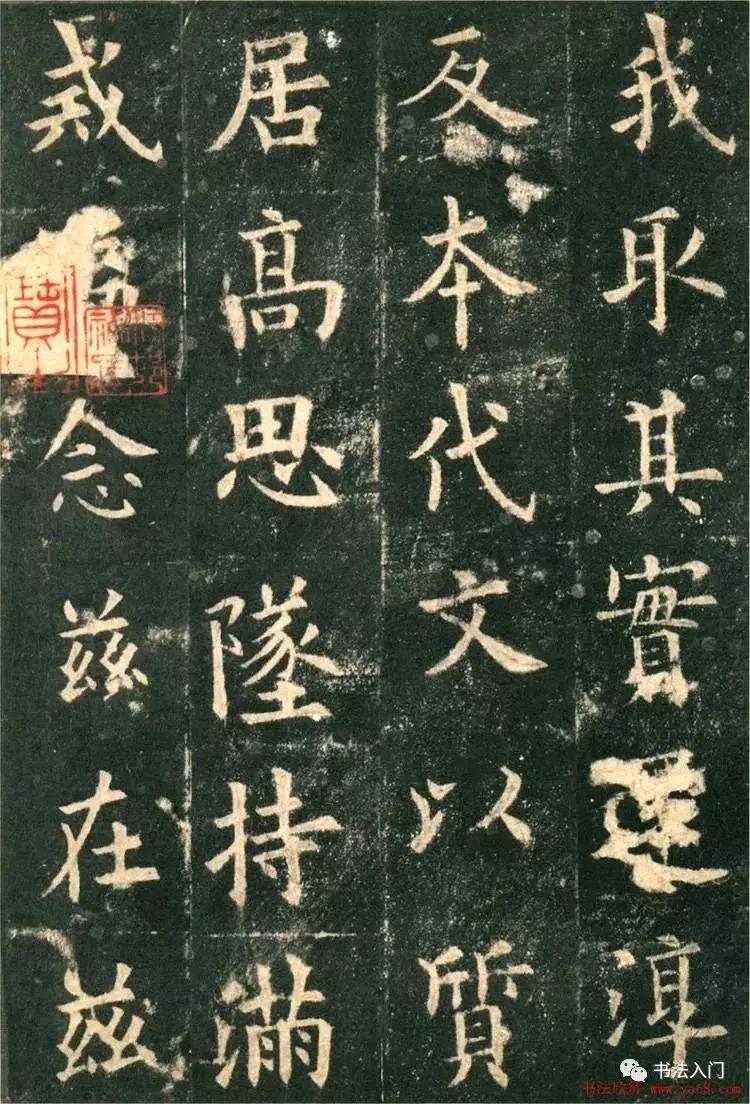 我取其實還淳
反本代文以質
居高思墜持滿
戒念茲在茲
书法入门
书法欣赏 www.yac8.com